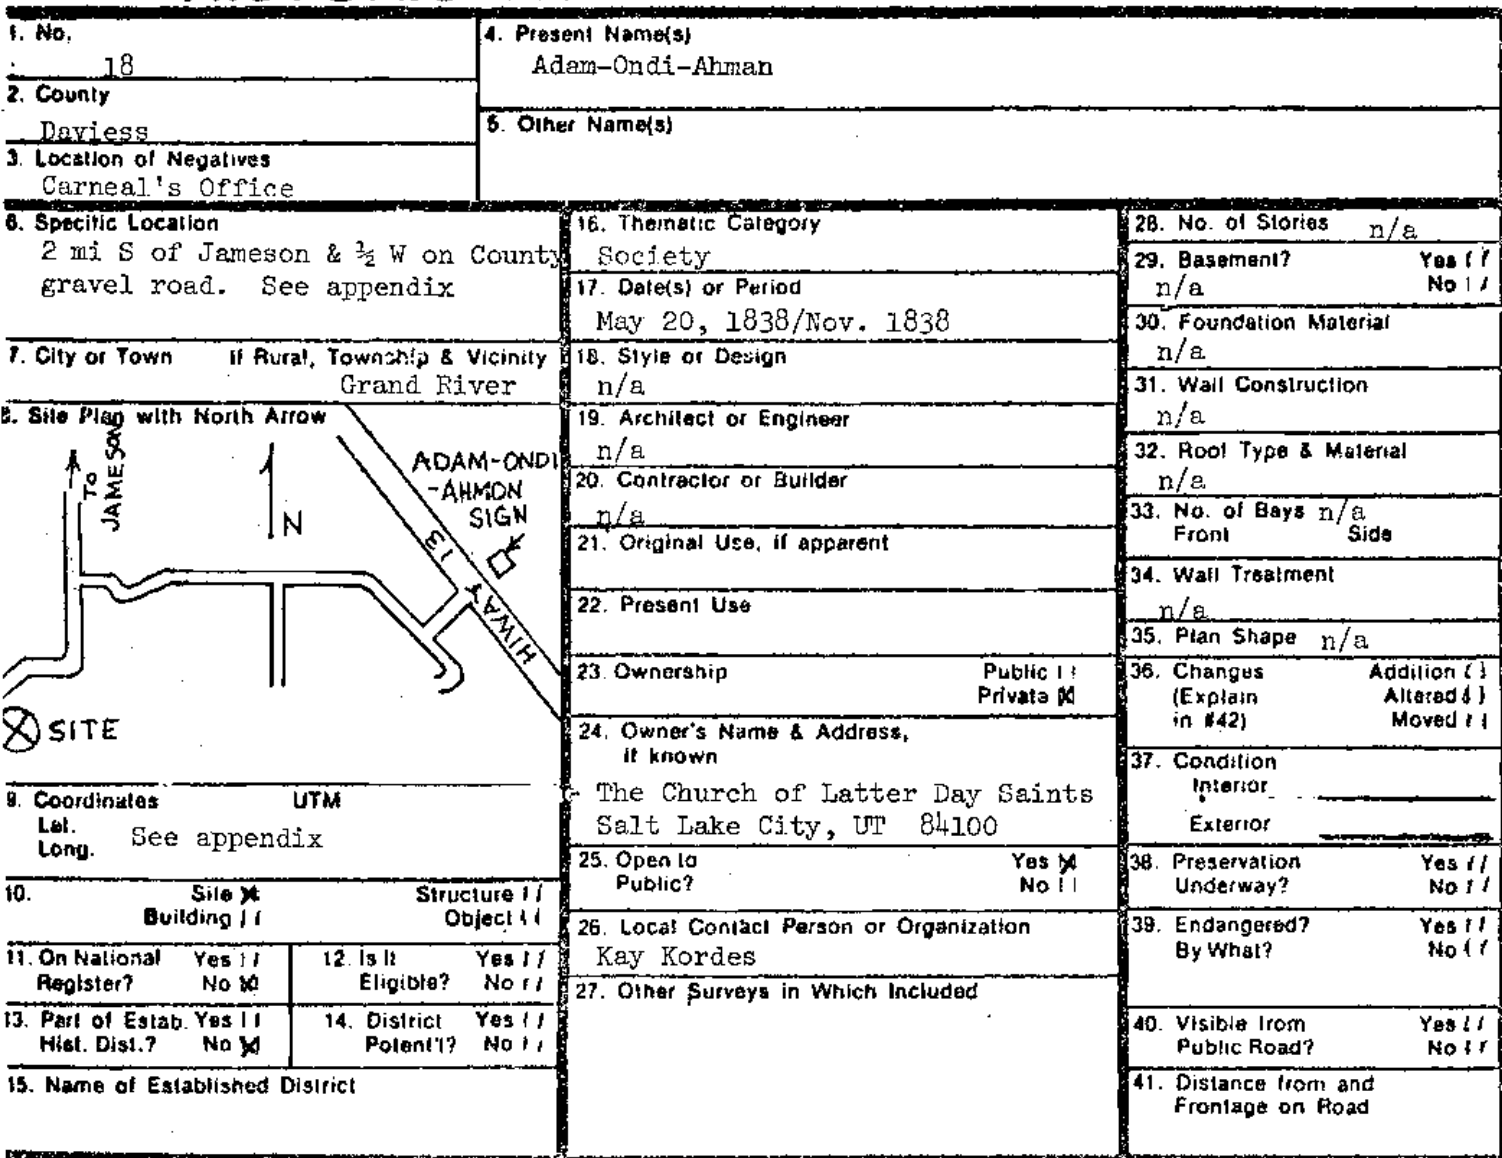 1. No.
18
2. County
Daviess
3. Location of Negatives
Carneal's Office
4. Present Name(s)
Adam-Ondi-Ahman
5. Other Name(s)
6. Specific Location
2 mi S of Jameson & ½ W on County
gravel road. See appendix
7. City or Town If Rural, Township & Vicinity
Grand River
8. Site Plan with North Arrow
To JAMESON
N
ADAM-ONDI
-AHMON
SIGN
HIWAY 13
SITE
9. Coordinates UTM
Lat.
Long.
See appendix
10. Site (X) Structure ( )
Building ( ) Object ( )
11. On National Yes ( )
Register? No (X)
12. Is It Yes ( )
Eligible? No ( )
13. Part of Estab. Yes ( )
Hist. Dist.? No (X)
14. District Yes ( )
Potent'l? No ( )
15. Name of Established District
16. Thematic Category
Society
17. Date(s) or Period
May 20, 1838/Nov. 1838
18. Style or Design
n/a
19. Architect or Engineer
n/a
20. Contractor or Builder
n/a
21. Original Use, if apparent
22. Present Use
23. Ownership Public ( )
Private (X)
24. Owner's Name & Address,
if known
The Church of Latter Day Saints
Salt Lake City, UT 84100
25. Open to Yes (X)
Public? No ( )
26. Local Contact Person or Organization
Kay Kordes
27. Other Surveys in Which Included
28. No. of Stories n/a
29. Basement? Yes ( )
n/a No ( )
30. Foundation Material
n/a
31. Wall Construction
n/a
32. Roof Type & Material
n/a
33. No. of Bays n/a
Front Side
34. Wall Treatment
n/a
35. Plan Shape n/a
36. Changes Addition ( )
(Explain Altered ( )
in #42) Moved ( )
37. Condition
Interior
Exterior
38. Preservation Yes ( )
Underway? No ( )
39. Endangered? Yes ( )
By What? No ( )
40. Visible from Yes ( )
Public Road? No ( )
41. Distance from and
Frontage on Road